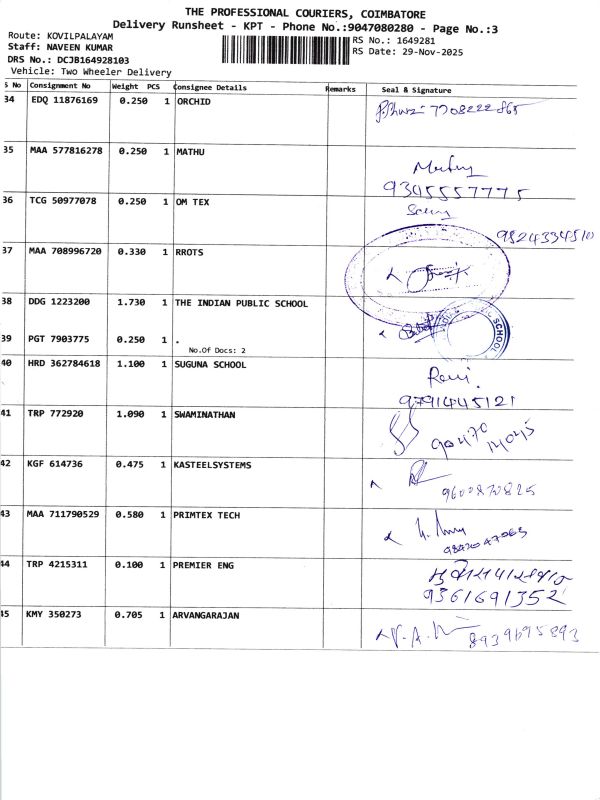 THE PROFESSIONAL COURIERS, COIMBATORE
Delivery Runsheet - KPT - Phone No.:9047080280 - Page No.:3
Route: KOVILPALAYAM
Staff: NAVEEN KUMAR
DRS No.: DCJB164928103
Vehicle: Two Wheeler Delivery
RS No.: 1649281
RS Date: 29-Nov-2025
S No Consignment No Weight PCS Consignee Details Remarks Seal & Signature
34 EDQ 11876169 0.250 1 ORCHID 7708222865
35 MAA 577816278 0.250 1 MATHU
9345557775
36 TCG 50977078 0.250 1 OM TEX
9524334510
37 MAA 708996720 0.330 1 RROTS
38 DDG 1223200 1.730 1 THE INDIAN PUBLIC SCHOOL
SCHOOL
39 PGT 7903775 0.250 1 .
No.Of Docs: 2
40 HRD 362784618 1.100 1 SUGUNA SCHOOL
Ravi.
9791445121
41 TRP 772920 1.090 1 SWAMINATHAN
90470
12045
42 KGF 614736 0.475 1 KASTEELSYSTEMS
9600870825
43 MAA 711790529 0.580 1 PRIMTEX TECH
9842047063
44 TRP 4215311 0.100 1 PREMIER ENG
9361691352
45 KMY 350273 0.705 1 ARVANGARAJAN
8939695893